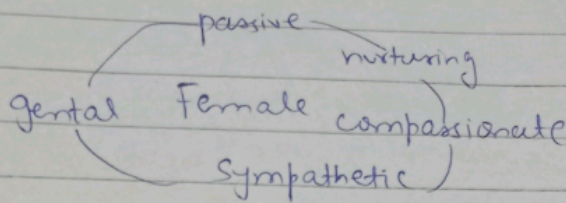 passive
nurturing
gental Female compassionate
Sympathetic